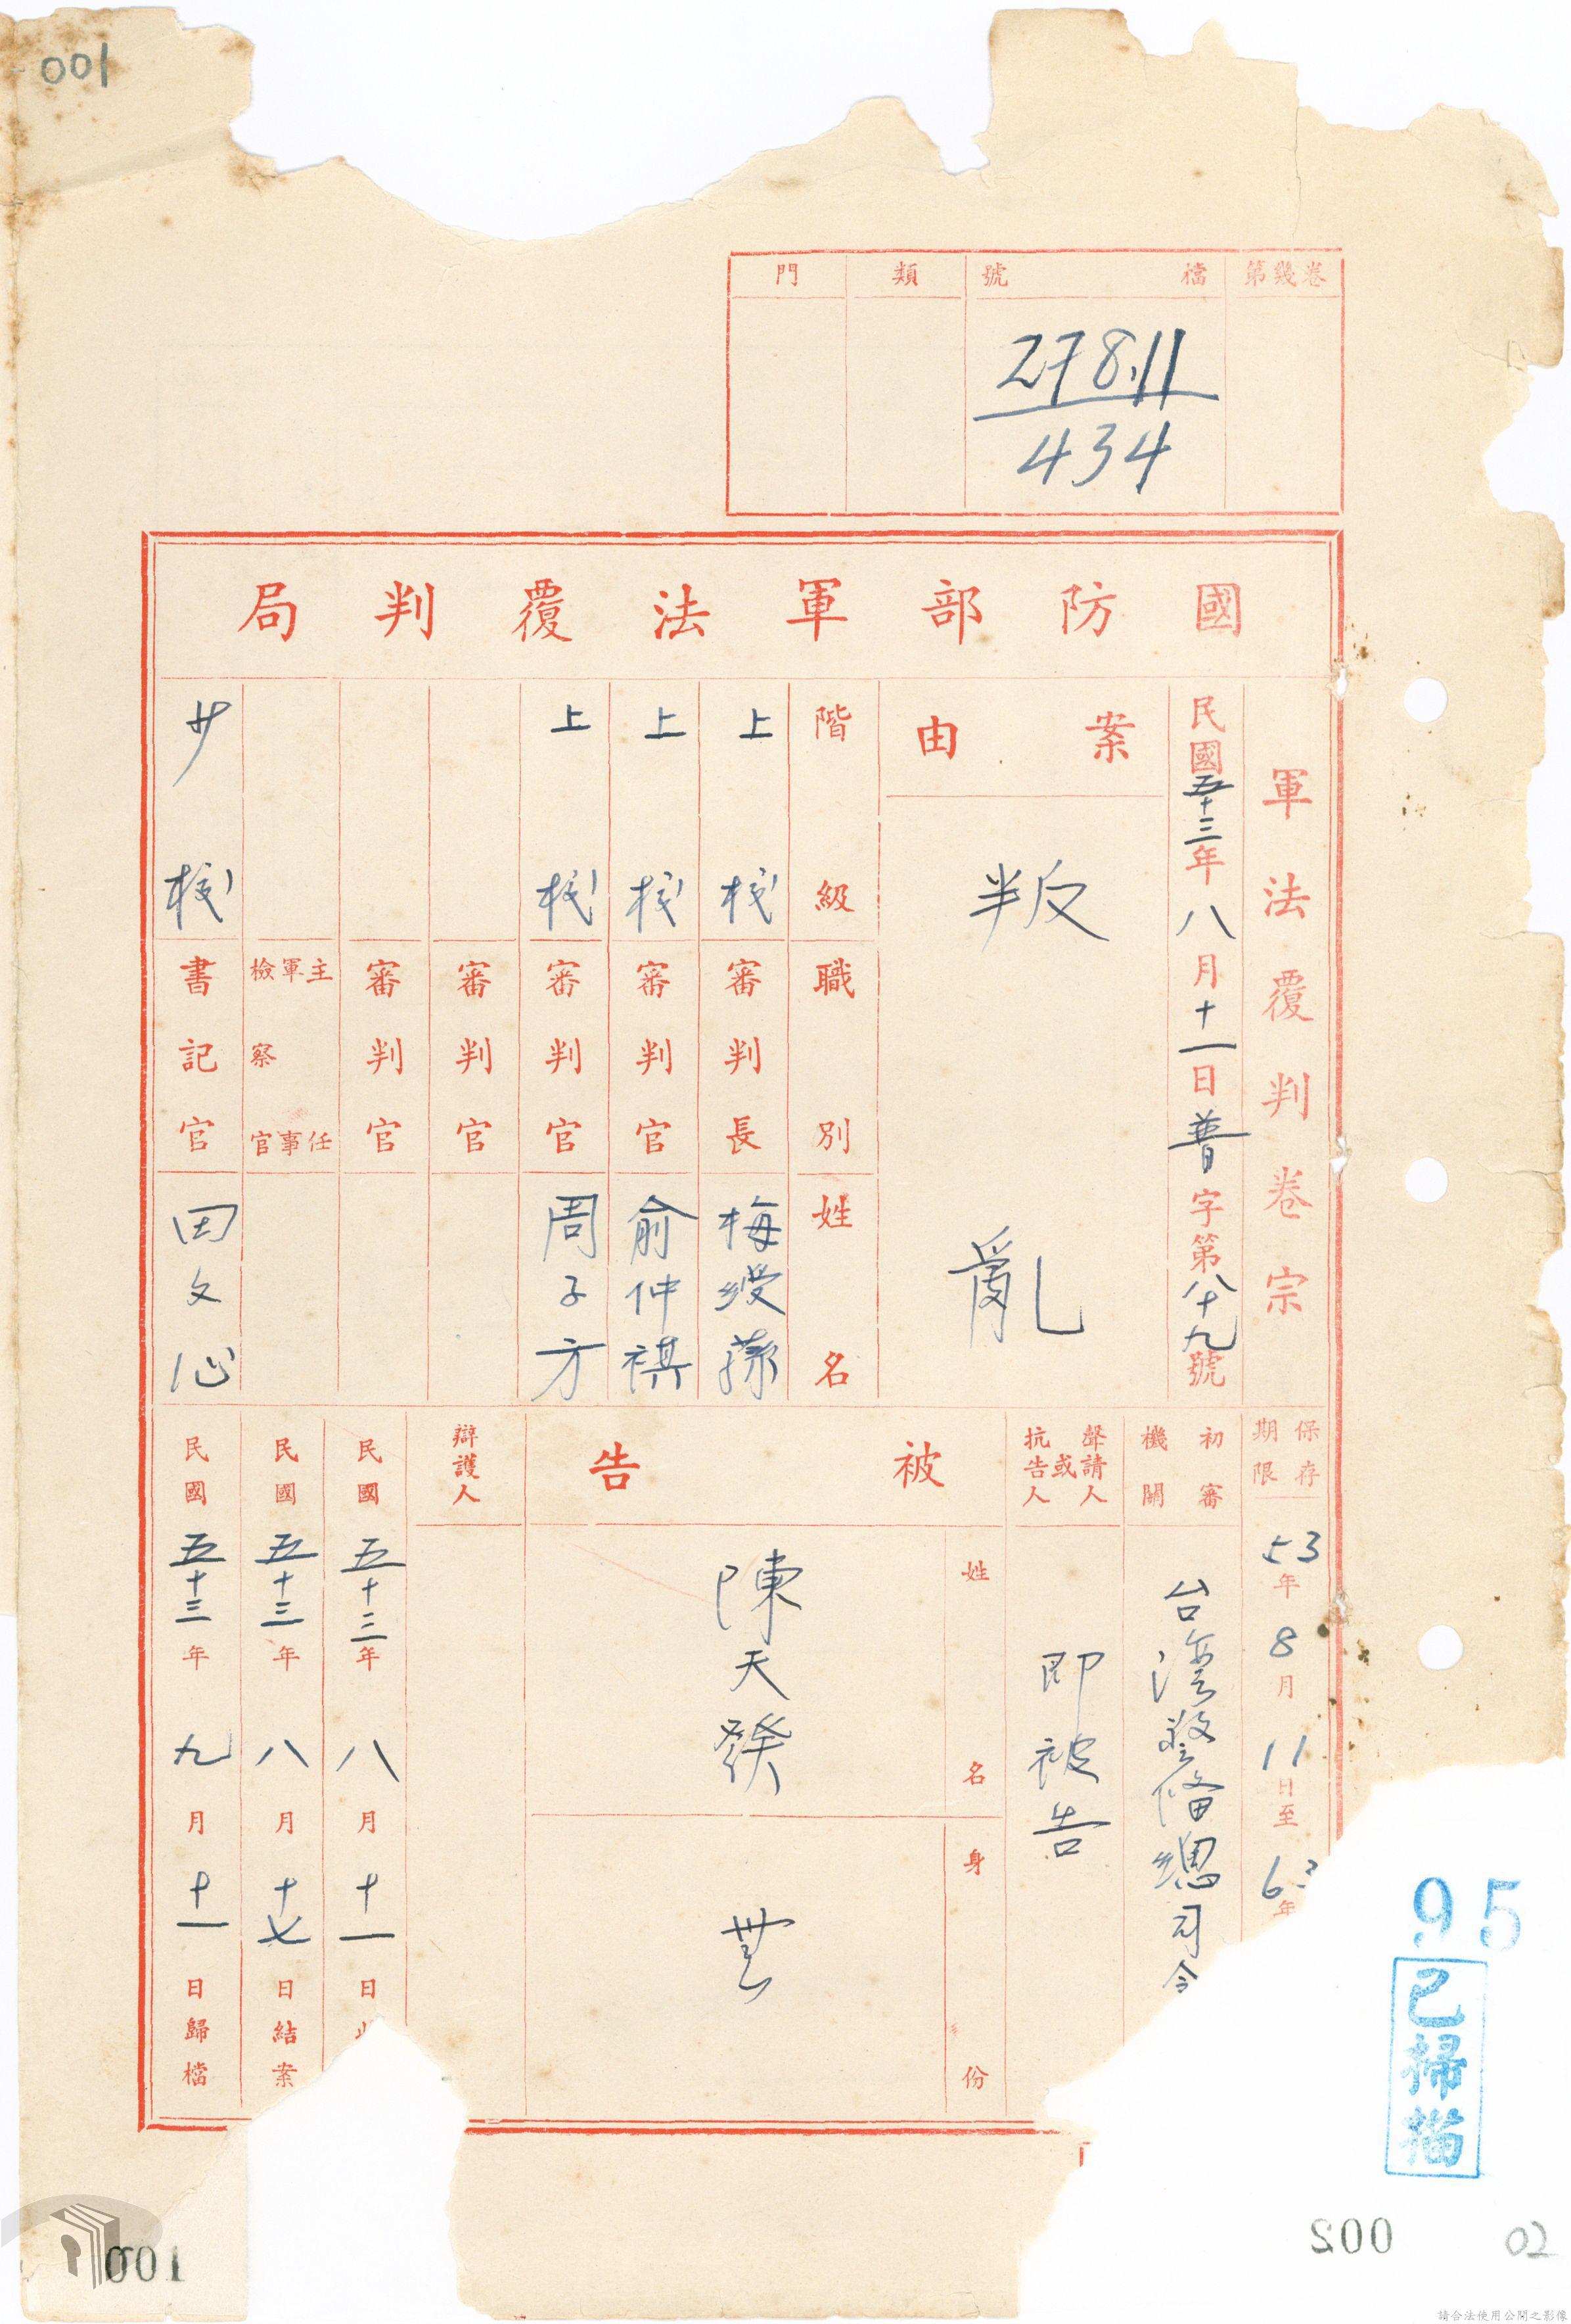 001
卷幾第
檔號
類
門
278.11
434
國防部軍法覆判局
軍法覆判卷宗
民國五十三年八月十一日普字第八十九號
案由
叛亂
階級 職別 姓名
上校 審判長 梅綬蓀
上校 審判官 俞仲祺
上校 審判官 周子方
審判官
審判官
主任軍事檢察官
少校 書記官 田文心
保存期限
53年8月11日至63年
初審機關
台灣警備總司令
聲請人或抗告人
即被告
被告
姓名
陳天發
身份
無
辯護人
民國五十三年八月十一日
民國五十三年八月十七日結案
民國五十三年九月十一日歸檔
95
已掃描
002
02
001
請合法使用公開之影像